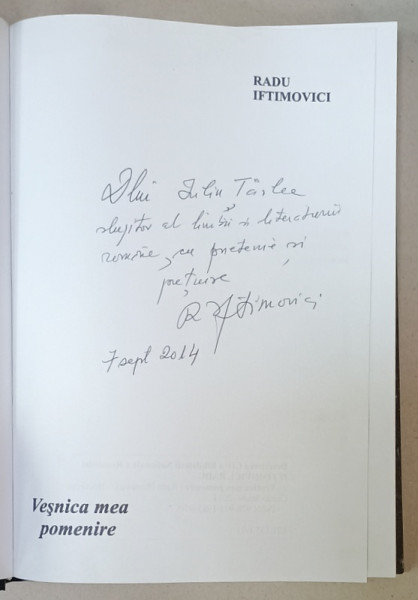 RADU
IFTIMOVICI
Dlui Iuliu Târlea
slujitor al limbii și literaturii
române, cu prietenie și
prețuire
R Iftimovici
7 sept 2014
Veşnica mea
pomenire